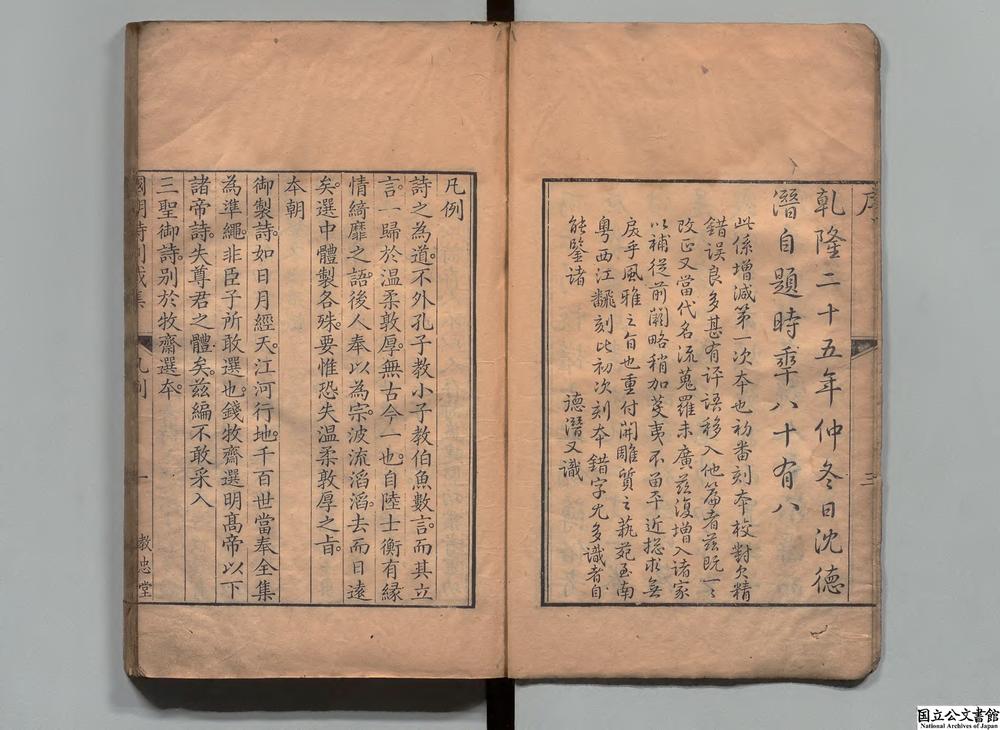 序
三
乹隆二十五年仲冬日沈德
潛自題時秊八十有八
此係增減第一次本也初番刻本校對欠精
錯誤良多甚有評語移入他篇者茲既一々
改正又當代名流蒐羅未廣茲復增入諸家
以補從前闕略稍加芟夷不留平近捴求無
戾乎風雅之旨也重付開雕質之藝苑至南
粤西江翻刻此初次刻本錯字尤多識者自
能鑒諸
德潛又識
凡例
詩之為道。不外孔子教小子教伯魚數言。而其立
言。一歸於溫柔敦厚。無古今一也。自陸士衡有緣
情綺靡之語。後人奉以為宗。波流滔滔。去而日遠
矣。選中體製各殊。要惟恐失溫柔敦厚之旨。
本朝
御製詩。如日月經天。江河行地。千百世當奉全集
為準繩。非臣子所敢選也。錢牧齋選明高帝以下
諸帝詩。失尊君之體矣。茲編不敢采入
三聖御詩。別於牧齋選本。
國朝詩別裁集
凡例
一
教忠堂
国立公文書館
National Archives of Japan